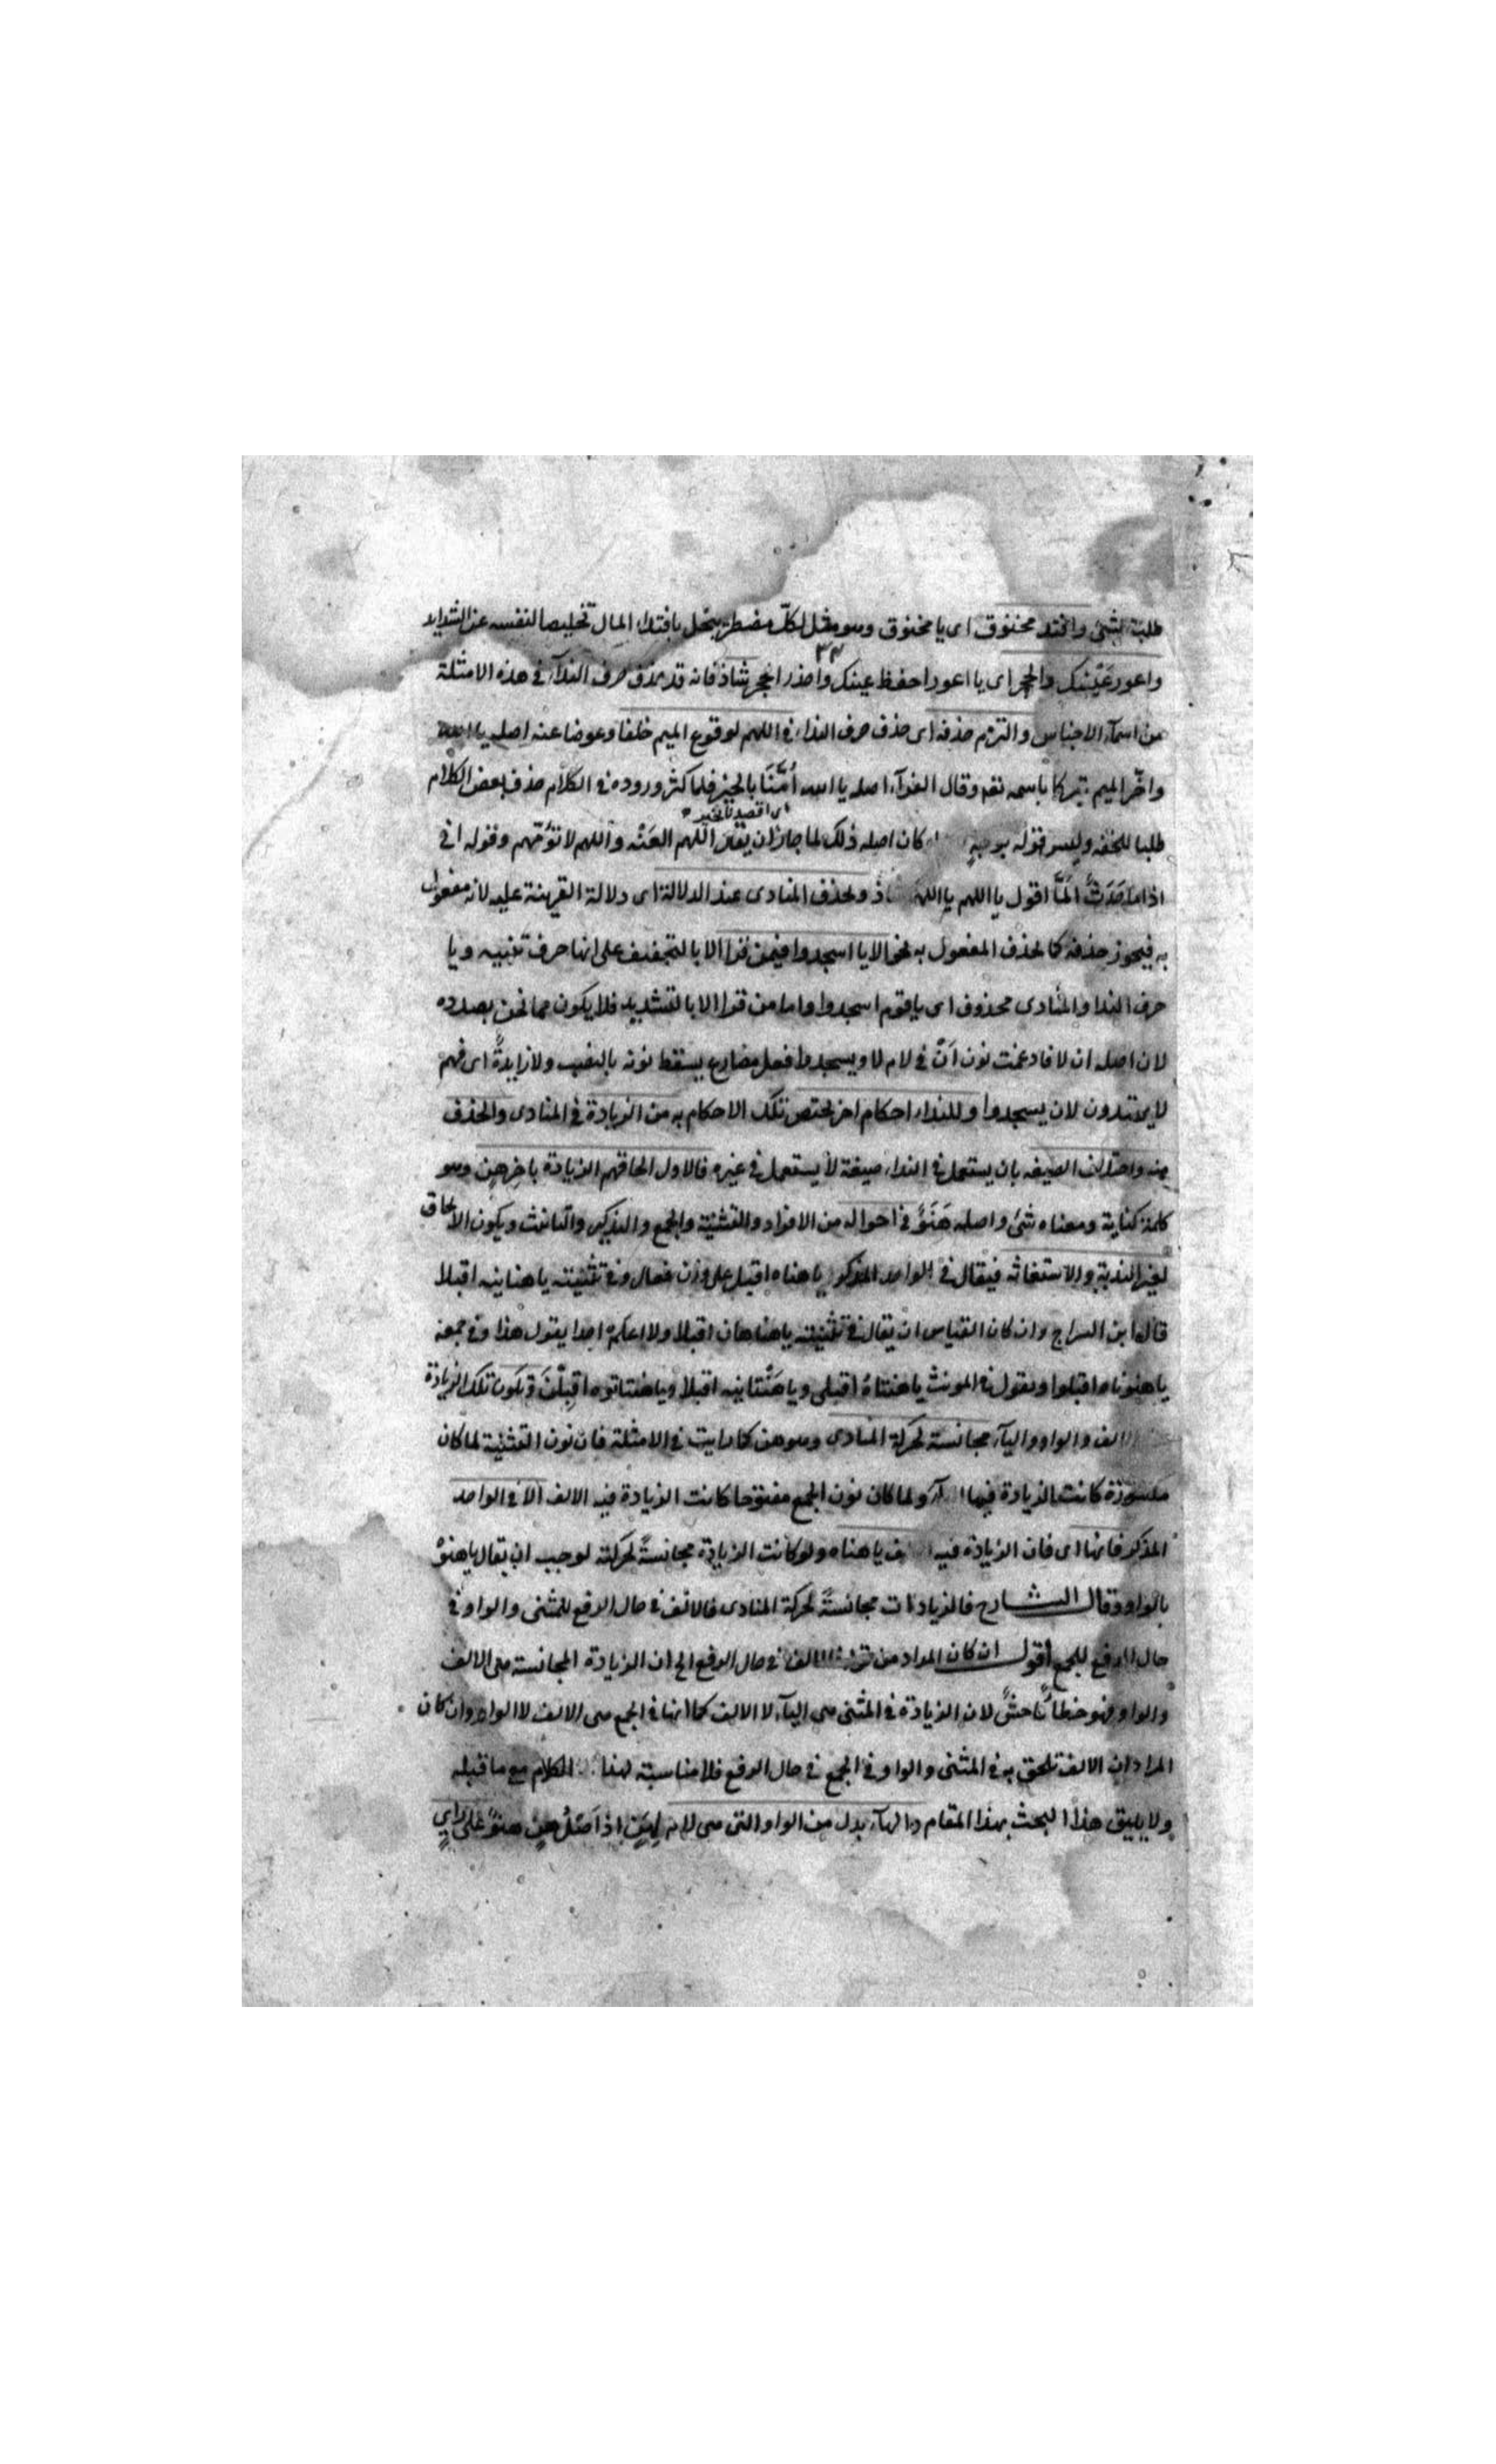 طلبته بشئ وافتد مخنوق اى يا مخنوق وهو مثل لكلّ مضطر يبخل بافتداء المال تخليصا لنفسه عن الشدايد
٣٣
واعور عَيْنك والحجر اى يا اعور احفظ عينك واحذر الحجر شاذ فانه قد يحذف حرف الندآء فى هذه الامثلة
من اسمآء الاجناس والتزم حذفه اى حذف حرف النداء فى اللهم لوقوع الميم خلفا وعوضا عنه اصله يا الله
واخّر الميم تبركا باسمه تعـ وقال الفرآء اصله يا الله اُمَّنَا بالخير فلما كثر وروده فى الكلام حذف بعض الكلام
اى اقصدنا بخير
طلبا للخفه وليس قوله بوجهٍ كان اصله ذلك لما جاز ان يقال اللهم العَنْه واللهم لا تؤمّهم وقوله انى
اذا ما حَدَثٌ اَلَمَّا اقول يا اللهم يا اللهما شاذ ويحذف المنادى عند الدلالة اى دلالة القرينة عليه لانه مفعول
به فيجوز حذفه كما يحذف المفعول به نحو الا يا اسجدوا فيمن قرا الا بالتخفيف على انها حرف تنبيه ويا
حرف الندا والمنادى محذوف اى يا قوم اسجدوا واما من قرا الا بالتشديد فلا يكون مما نحن بصدده
لان اصله ان لا فادغمت نون اَنْ فى لام لا ويسجدوا فعل مضارع يسقط نونه بالنصب ولا زايدةً اى فهم
لا يهتدون لان يسجدوا وللنداء احكام اخر يختص تلك الاحكام به من الزيادة فى المنادى والحذف
منه واختلاف الصيغه بان يستعمل فى النداء صيغة لا يستعمل فى غيره فالاول الحاقهم الزيادة باخر هنٍ وهو
كلمة كناية ومعناه شئ واصله هَنَوٌ فى احواله من الافراد والتثنية والجمع والتذكير والتانيث ويكون الالحاق
لغير الندبة والاستغاثه فيقال فى الواحد المذكر يا هناه اقبل على وزن فعال وفى تثنيته يا هنانيه اقبلا
قال ابن السراج وان كان القياس ان يقال فى تثنيته يا هناهان اقبلا ولا اعلم احدا يقول هذا وفى جمعه
يا هنوناه اقبلوا ويقول فى المونث يا هنتاهُ اقبلى ويا هَنْتانيه اقبلا ويا هنتاتوه اقبِلْنَ وتكون تلك الزيادة
الالف والواو واليآء مجانسة لحركة المنادى وهو هن كما رايت فى الامثلة فان نون التثنية لما كان
مكسورة كانت الزيادة فيها اليآء ولما كان نون الجمع مفتوحا كانت الزيادة فيه الالف الا فى الواحد
المذكر فانها اى فان الزيادة فيه الف يا هناه ولو كانت الزيادة مجانسةً لحركته لوجب ان يقال يا هنوْ
بالواو وقال الشارح فالزيادات مجانسةً لحركة المنادى فالالف فى حال الرفع للمثنى والواو فى
حال الرفع للجمع اقول ان كان المراد من قوله الالف فى حال الرفع الى ان الزيادة المجانسة هى الالف
والواو فهو خطأ فاحشٌ لان الزيادة فى المثنى هى اليآء لا الالف كما انها فى الجمع هى الالف لا الواو وان كان
المراد ان الالف تلحق به فى المثنى والواو فى الجمع فى حال الرفع فلا مناسبته لهذا الكلام مع ما قبله
ولا يليق هذا البحث بهذا المقام والهآء بدل من الواو التى هى لام هن اذ اَصْلُ هنٍ هنوٌ على راىٍ